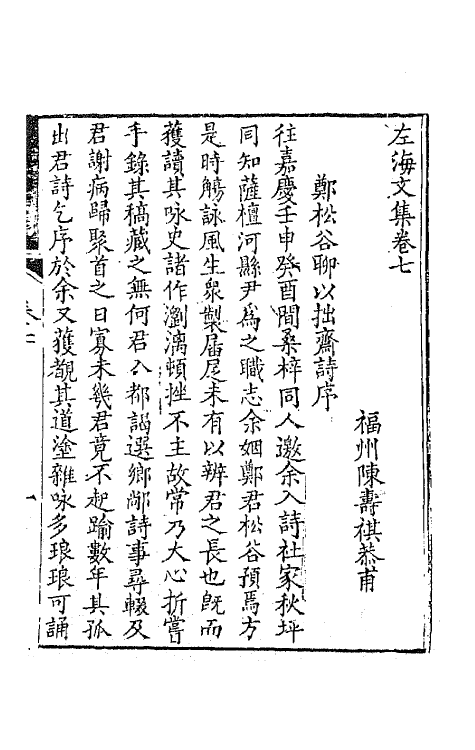 左海文集卷七
福州陳壽祺恭甫
鄭松谷聊以拙齋詩序
往嘉慶壬申癸酉間桑梓同人邀余入詩社家秋坪
同知薩檀河縣尹為之職志余姻鄭君松谷預焉方
是時觴詠風生衆製屇尾未有以辨君之長也旣而
獲讀其咏史諸作瀏漓頓挫不主故常乃大心折嘗
手錄其稿藏之無何君入都謁選鄉鄰詩事尋輟及
君謝病歸聚首之日寡未幾君竟不起踰數年其孤
出君詩乞序於余又獲覩其道塗雜咏多琅琅可誦